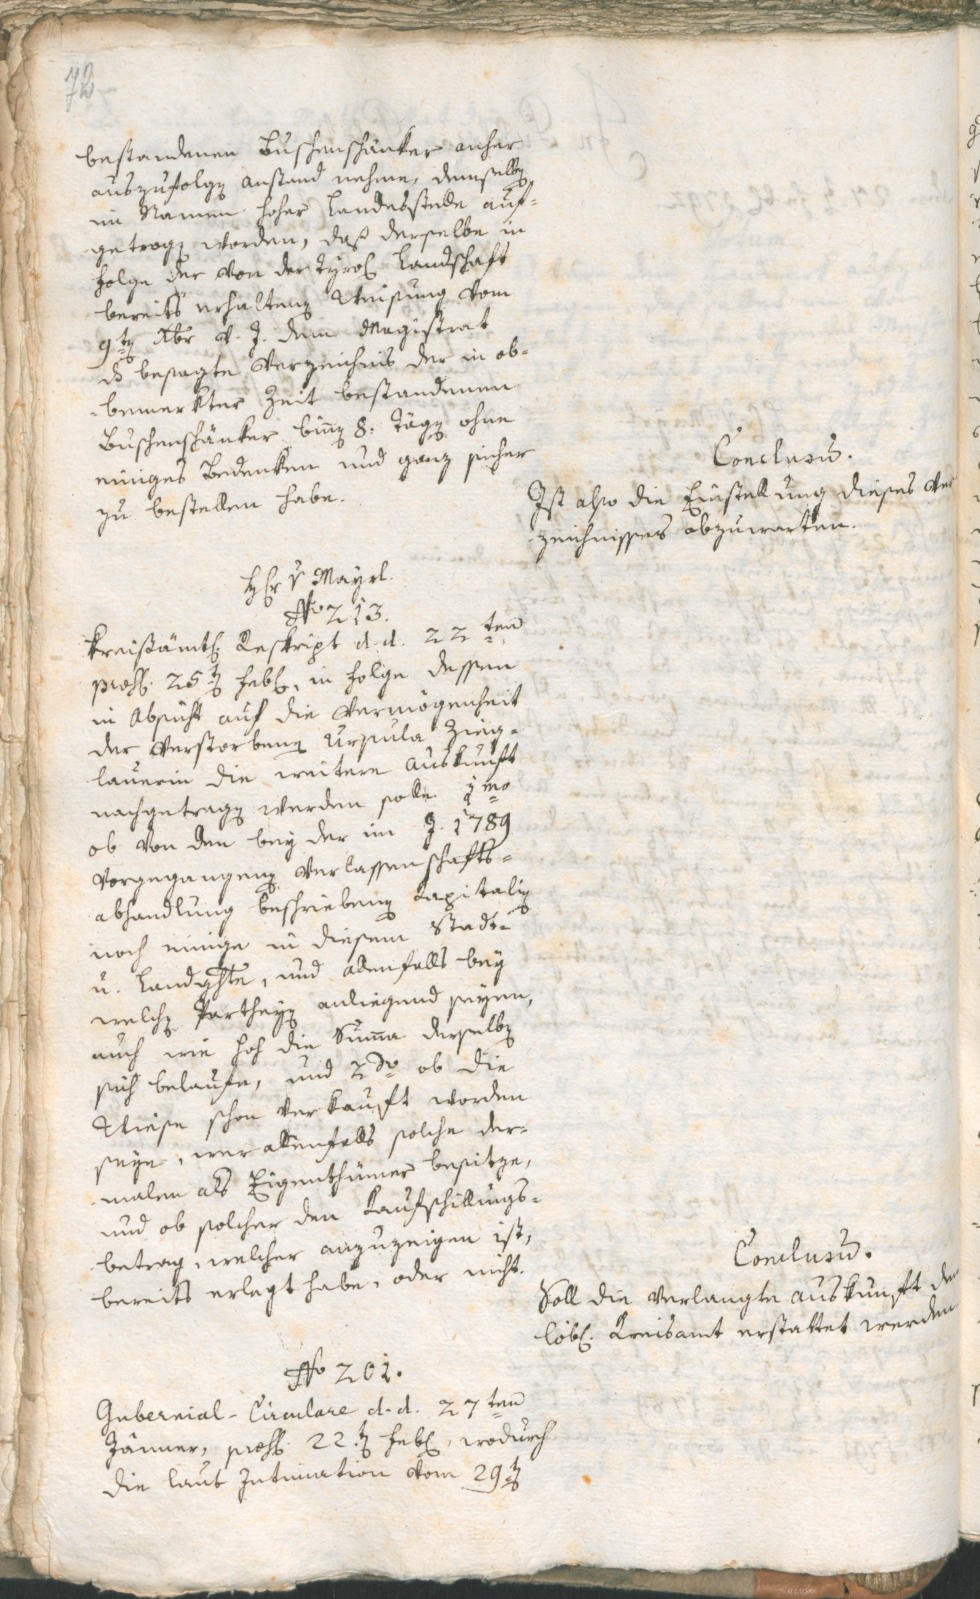 72
bestandenen Buschenschänker anher
auszufolgen Anstand nehme, demselben
im Namen hoher Landesstelle auf-
getragen worden, daß derselbe in
Folge der von der Tyrol. Landschaft
bereits erhaltenen Weisung vom
9ten Xbr v. J. dem Magistrat
besagte Verzeichnis der in ob-
bemerkter Zeit bestandenen
Buschenschänker binnen 8. Tägen ohne
einiges Bedenken und ganz sicher
zu bestellen habe.
Conclusum.
Ist also die Einstellung dieses Ver
zeichnisses abzuwarten.
Hr v Mayrl.
No 213.
Kreisämtl. Reskript d. d. 22ten
praes. 25ten Feb., in Folge dessen
in Absicht auf die Vermögenheit
der verstorbenen Ursula Zieg-
lauerin die weitere Auskunft
nachgetragen werden solle 1mo
ob von den bey der im J. 1789
vorgegangenen Verlassenschafts-
abhandlung beschriebenen Kapitalien
noch einige in diesem Stadt-
u. Landgchte, und allenfalls bey
welchen Partheyen anliegend seyen,
auch wie hoch die Summa derselben
sich belaufe, und 2do ob die
Wiese schon verkauft worden
seye, wer allenfalls solche der-
malen als Eigenthümer besitze,
und ob solcher den Kaufschillings-
betrag, welcher anzuzeigen ist,
bereits erlegt habe, oder nicht.
Conclusum.
Soll die verlangte Auskunft dem
löbl. Kreisamt erstattet werden
No 201.
Gubernial-Circulare d. d. 27ten
Jänner, praes. 22.ten Feb., wodurch
die laut Intimation vom 29ten